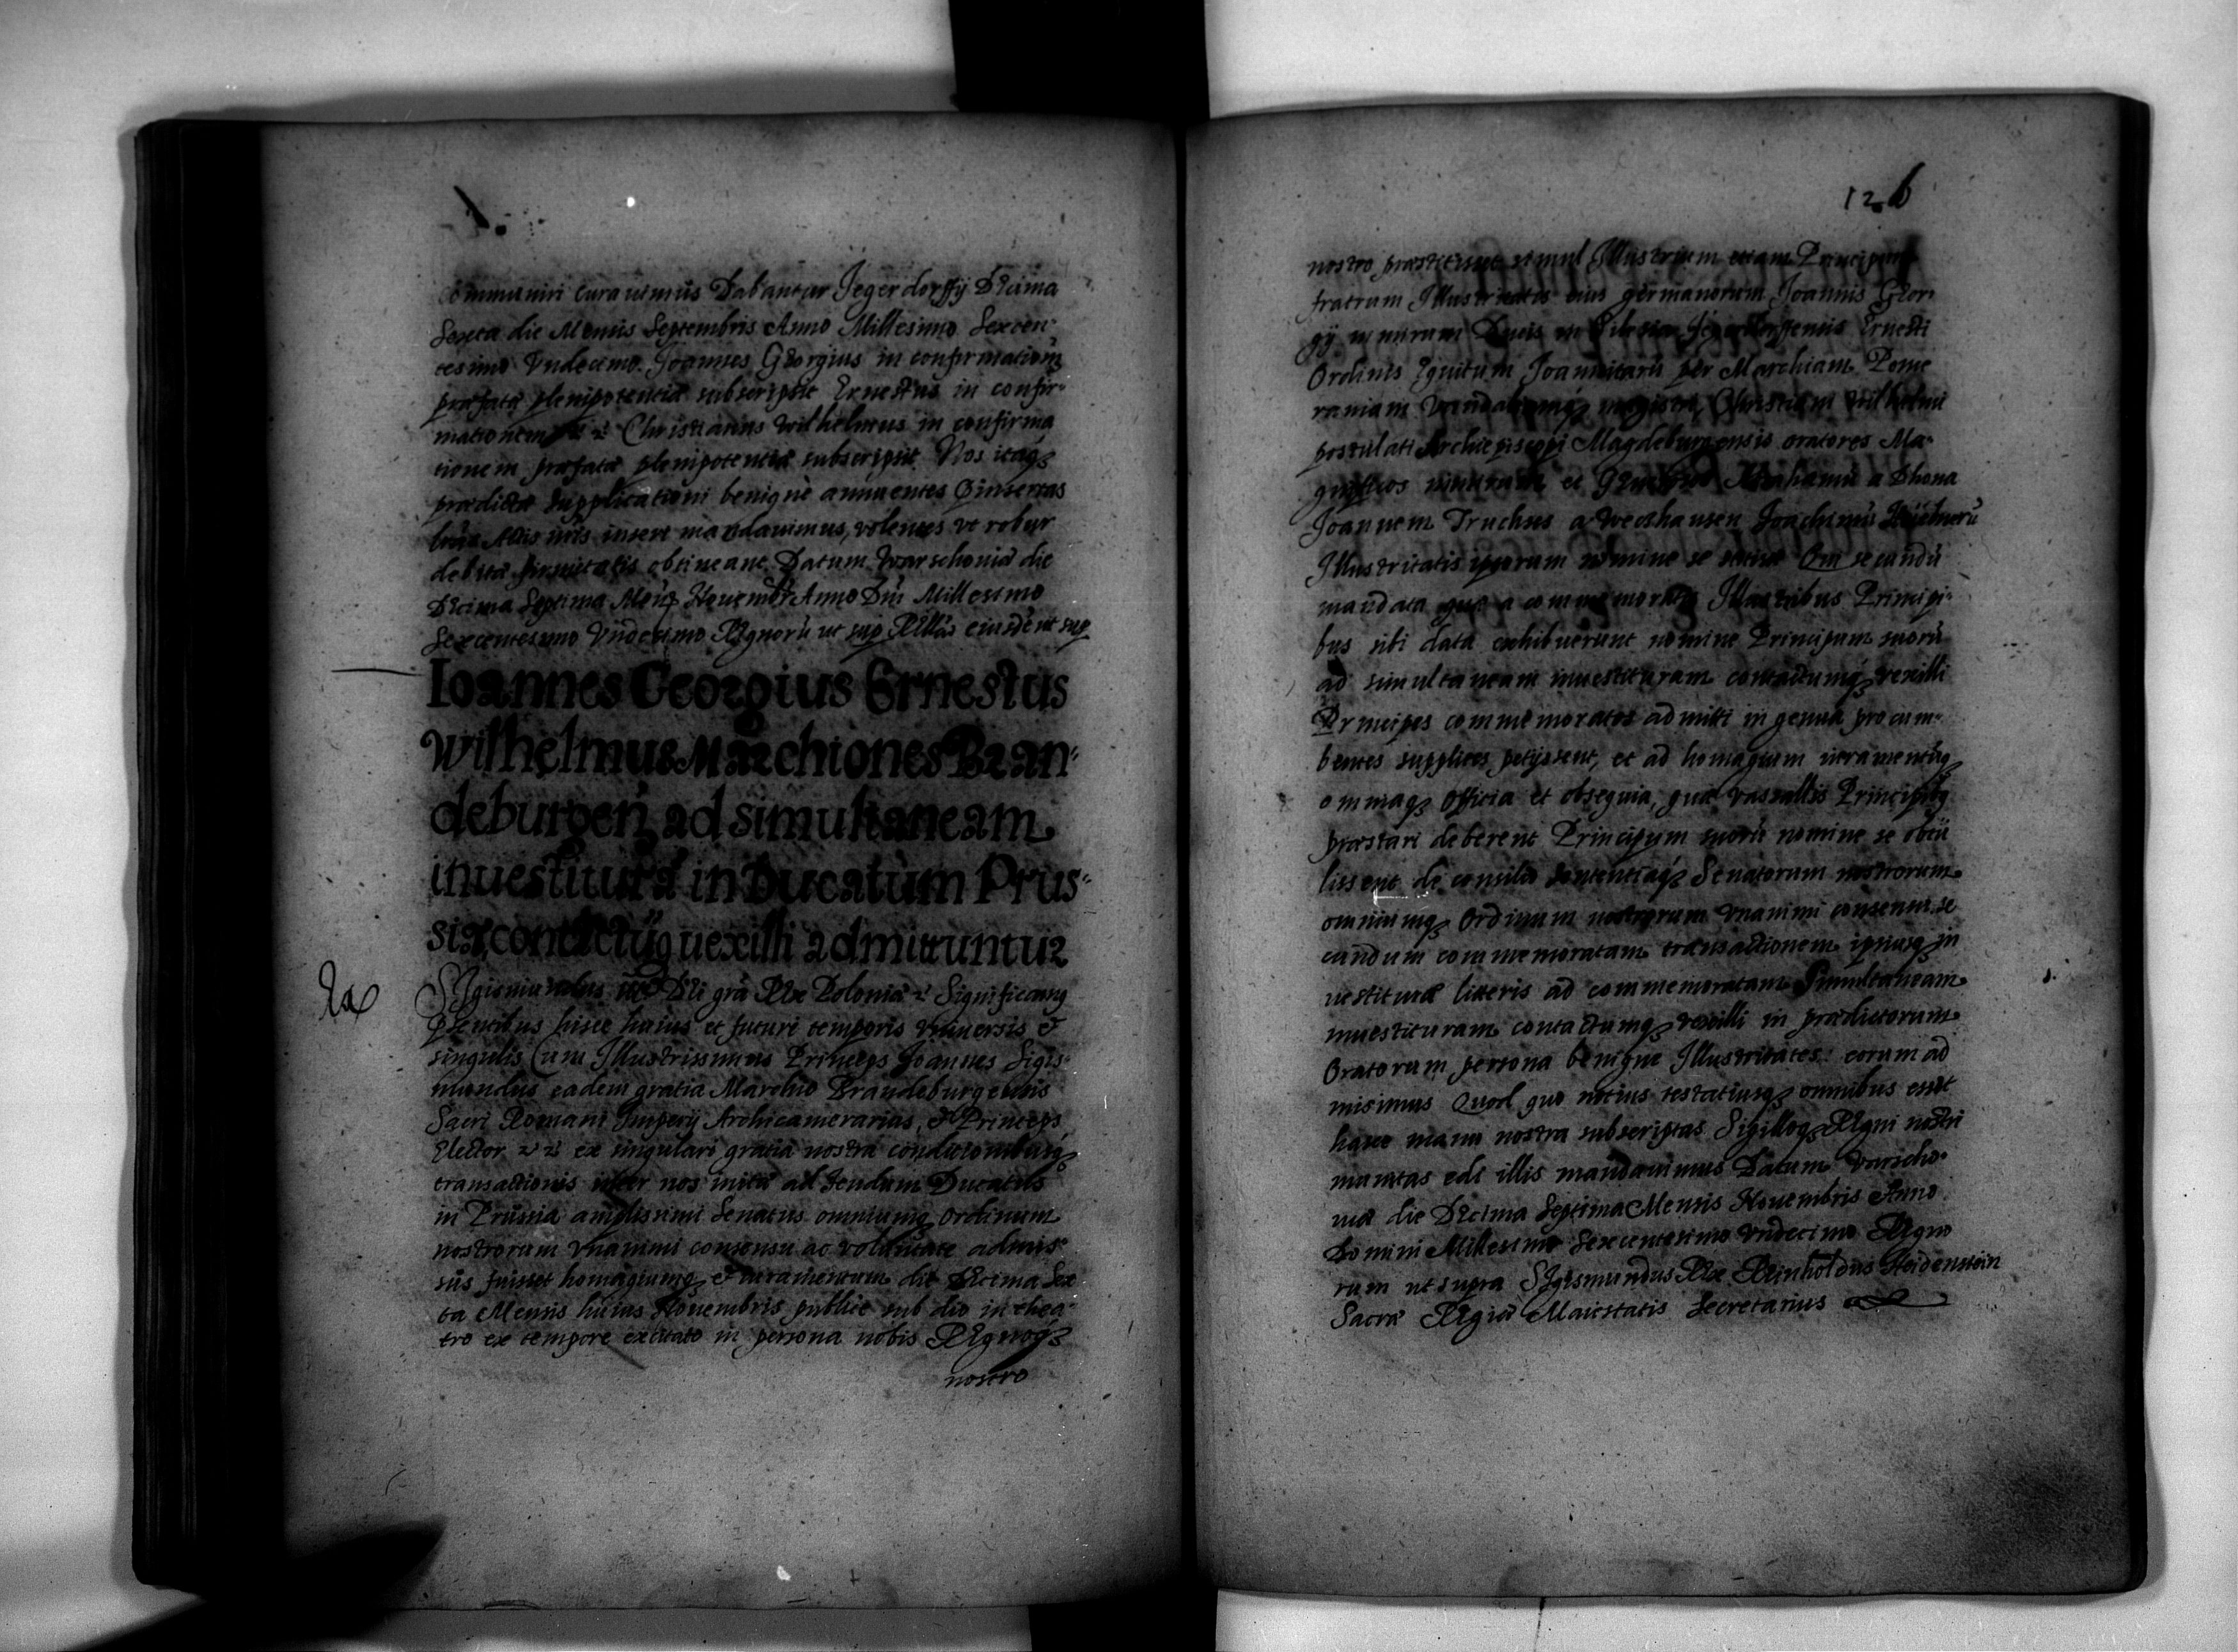 communiri curauimus Dabantur Jegerdorffij Decima
Sexta die Mensis Septembris Anno Millesimo Sexcen-
tesimo Vndecimo. Joannes Georgius in confirmationem
præfatæ plenipotentiæ subscripsit Ernestus in confir-
mationem Christianus Wilhelmus in confirma
tionem præfatæ plenipotentiæ subscripsit. Nos itaq3
prædictæ supplicationi benignè annuentes insertas
insere mandauimus, volentes vt robur
debitæ firmitatis obtineant Datum Warschouiæ die
Decima Septima Nouembr Anno Dni Millesimo
Sexcentesimo Vndecimo Regnorũ ut sup ut sup
Ioannes Georgius Ernestus
Wilhelmus Marchiones Bran-
deburgeñ ad simultaneam
inuestiturã in Ducatum Prus-
siæ contactũq uexilli admittuntur
Sigismundus Dei gra Rex Poloniæ Significamq
pñtibus hisce huius et futuri temporis vniuersis et
singulis Cum Illustrissimus Princeps Joannes Sigis-
mundus eadem gratia Marchio Brandeburgensis
Sacri Romani Imperij Archicamerarius, et Princeps
Elector ex singulari gratia nostra conditionibusq3
transactionis inter nos initæ ad feudum Ducatus
in Prussia amplissimi Senatus omniumq3 Ordinum
nostrorum vnanimi consensu ac voluntate admis-
sus fuisset homagiumq3 et iuramentum die Decima Sex
ta Mensis huius Nouembris publice sub dio in thea-
tro ex tempore excitato in persona nobis Regnoq3
nostro
126
nostro præstitisset simul Illustrium etiam Principum
fratrum Illustritatis eius germanorum Joannis Geor
gij Ducis in Silesia Jegerdorffensis Ernesti
Ordinis Equitum Joannitarũ per Marchiam Pome
raniam Vandaliamq3 magistri, Christiani Wilhelmi
postulati Archiepiscopi Magdeburgensis oratores Ma-
gnificos et Generosos Abrahamũ a Dhona
Joannem Truchus a Weczhausen Joachimũ Hübnerũ
Illustritatis ipsorum nomine se Qui secundũ
mandata quæ a commemoratis Illustribus Principi-
bus sibi data exhibuerunt nomine Principum suorũ
ad simultaneam inuestituram contactumq3 vexilli
Principes commemoratos admitti in genua procum-
bentes supplices petijssent, et ad homagium iuramentũq3
omniaq3 Officia et obsequia, quæ vassallis Principibq
præstari deberent Principum suorũ nomine se obtu
lissent de consilio sententiaq3 Senatorum nostrorum
omniumq3 Ordinum nostrorum vnanimi consensu se
cundum commemoratam transactionem ipsiusq3 in
uestituræ litteris ad commemoratam Simultaneam
inuestituram contactumq3 vexilli in prædictorum
Oratorum persona benigne Illustritates eorum ad
misimus Quod quo notius testatiusq3 omnibus esset
hasce manu nostra subscriptas Sigilloq3 Regni nostri
munitas edi illis mandauimus Datum Varscho-
uiæ die Decima Septima Mensis Nouembris Anno
Domini Millesimo Sexcentesimo vndecimo Regno
rum ut supra Sigismundus Rex Reinholdus Heidenstein
Sacræ Regiæ Maiestatis Secretarius